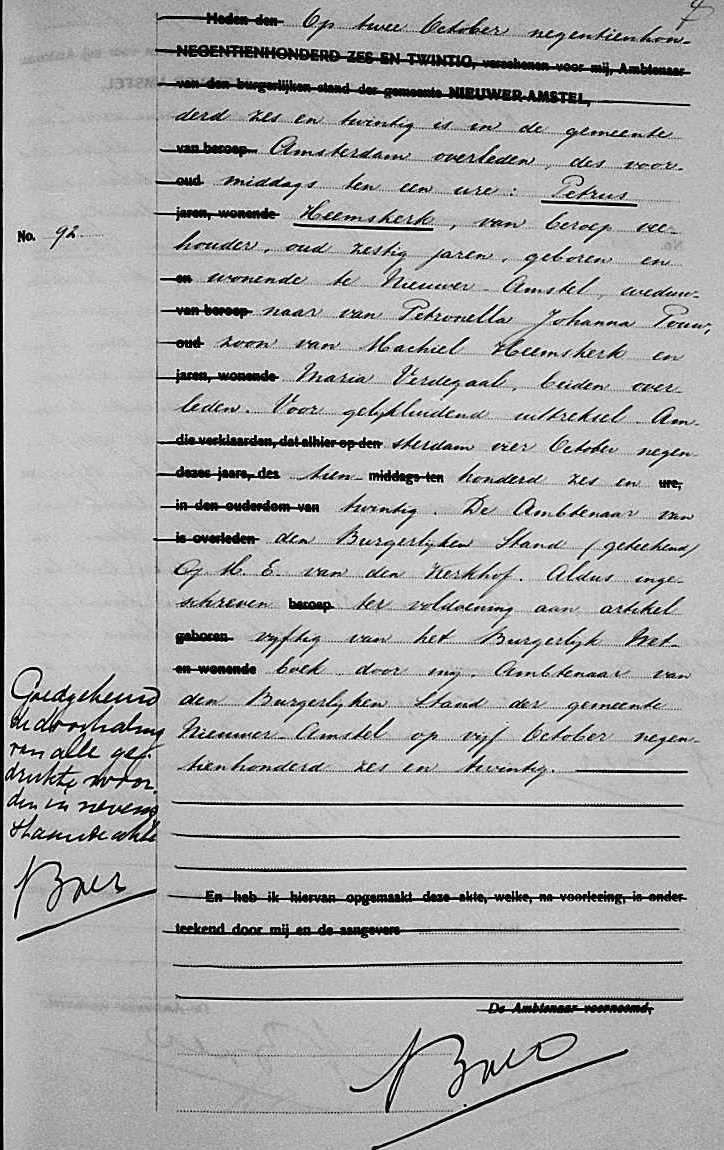 4
Heden den Op twee October negentienhon-
NEGENTIENHONDERD ZES EN TWINTIG, verschenen voor mij, Ambtenaar
van den burgerlijken stand der gemeente NIEUWER-AMSTEL,
derd zes en twintig is in de gemeente
van beroep Amsterdam overleden, des voor-
oud middags ten een ure: Petrus
jaren, wonende Heemskerk, van beroep vee-
No. 92.
houder, oud zestig jaren, geboren en
en wonende te Nieuwer-Amstel, weduw-
van beroep naar van Petronella Johanna Pouw,
oud zoon van Machiel Heemskerk en
jaren, wonende Maria Verdegaal, beiden over-
leden. Voor gelijkluidend uittreksel. Am-
die verklaarden, dat alhier op den sterdam vier October negen-
dezes jaars, des tien- middags ten honderd zes en ure,
in den ouderdom van twintig. De Ambtenaar van
is overleden den Burgerlijken Stand (geteekend)
H. E. van den Kerkhof. Aldus inge-
schreven beroep ter voldoening aan artikel
geboren vijftig van het Burgerlijk Wet-
en wonende boek, door mij, Ambtenaar van
den Burgerlijken Stand der gemeente
Nieuwer-Amstel op vijf October negen-
tienhonderd zes en twintig.
Goedgekeurd
de doorhaling
van alle ge-
drukte woor-
den in nevens
staande akte
Boers
En heb ik hiervan opgemaakt deze akte, welke, na voorlezing, is onder
teekend door mij en de aangevers
De Ambtenaar voornoemd,